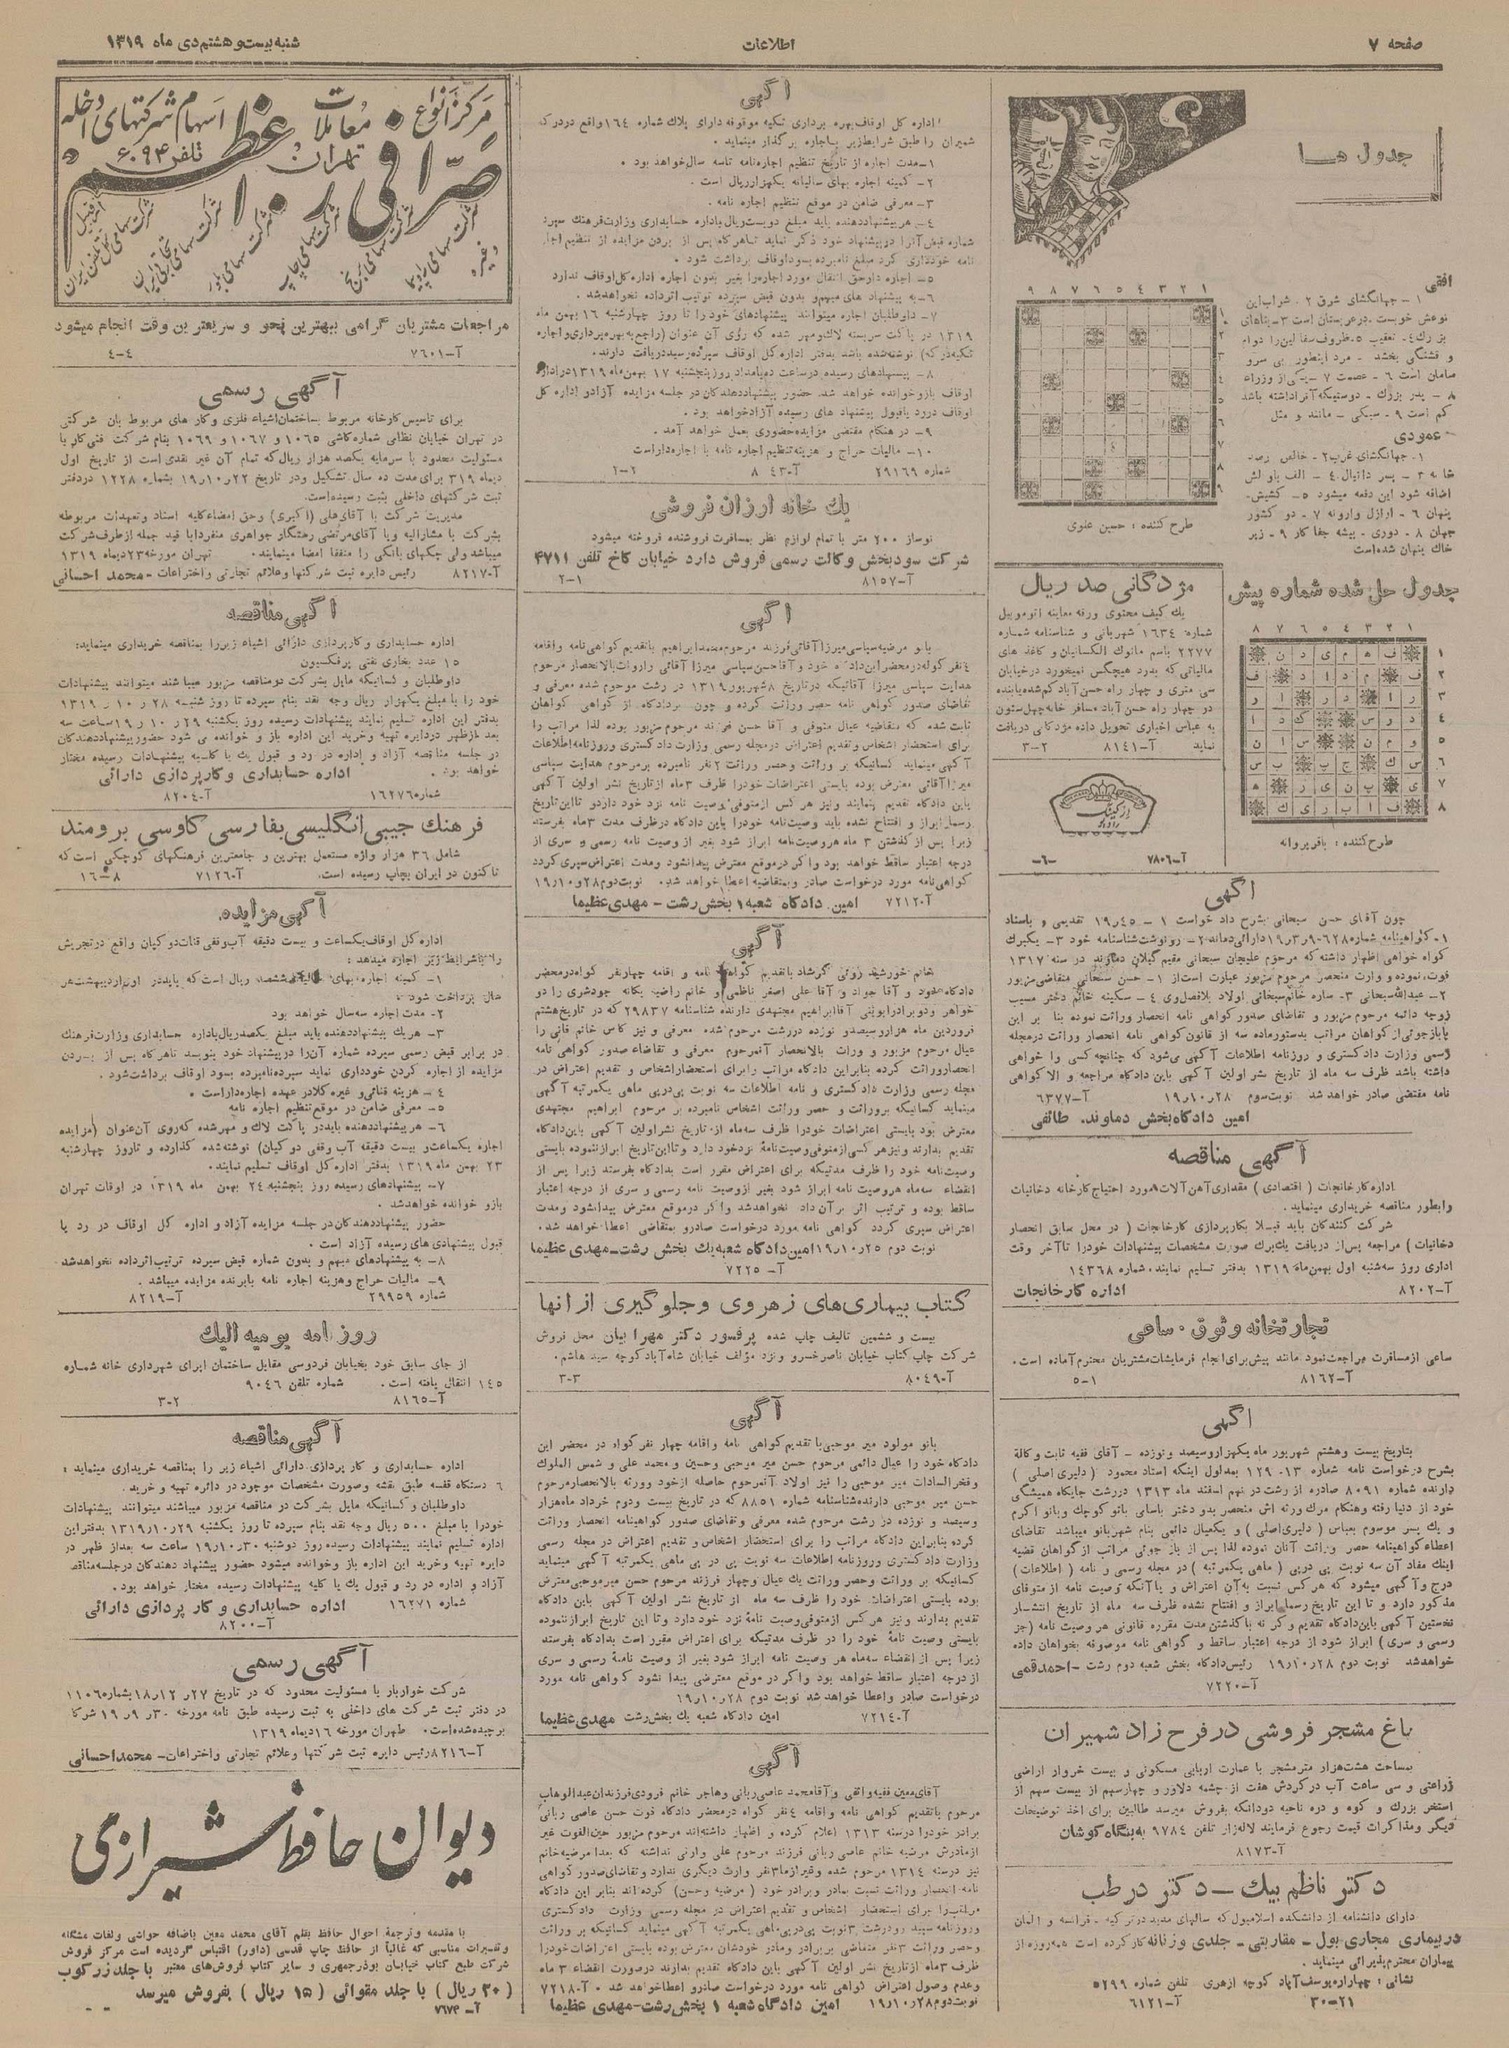 صفحه ۷
اطلاعات
شنبه بیست و هشتم دی ماه ۱۳۱۹
جدول ها
افقی
۱ - جهانگشای شرق ۲ - شراب این
سامان است ۶ - عصمت ۷ - یکی از وزراء
۸ - پدر بزرگ - دوستیکه آنرا داشته باشد
کم است ۹ - سبکی - مانند و مثل
عمودی
۱ - جهانگشای غرب ۲ - خالص
اضافه شود این دفعه میشود ۵ - کشیش -
پنهان ۶ - اراذل وارونه ۷ - دو کشور
جهان ۸ - دوری - پیشه جفا کار ۹ - زیر
خاک پنهان شده است
طرح کننده : حسین علوی
جدول حل شده شماره پیش
طرح کننده : باقر پروانه
مژدگانی صد ریال
یك کیف محتوی ورقه معاینه اتومبیل
شماره ۱۶۳۴ شهربانی و شناسنامه شماره
۲۲۷۷ باسم مانوك الکسانیان و کاغذ های
مالیاتی که بدرد هیچکس نمیخورد در خیابان
سی متری و چهار راه حسن آباد گم شده یابنده
در چهار راه حسن آباد مسافر خانه چهل ستون
به عباس اخباری تحویل داده مژدگانی دریافت
نماید آ-۸۱۴۱ ۳-۲
آ-۷۸۰۶ -۶-
آگهی
چون آقای حسن سبحانی بشرح داد خواست
گواه خواهی اظهار داشته که مرحوم علیجان سبحانی مقیم گیلان دماوند در سنه ۱۳۱۷
فوت نموده و وارث منحصر مرحوم مزبور عبارت است از ۱ - حسن سبحانی متقاضی مزبور
۲ - عبدالله سبحانی ۳ - ساره خانم سبحانی اولاد بلافصل وی ۴ - سکینه خانم دختر مسیب
زوجه دائمه مرحوم مزبور و تقاضای صدور گواهی نامه انحصار وراثت نموده بنا بر این
رسمی وزارت دادگستری و روزنامه اطلاعات آگهی می‌شود که چنانچه کسی را خواهی
داشته باشد ظرف سه ماه از تاریخ نشر اولین آگهی باین دادگاه مراجعه و الا گواهی
نامه مقتضی صادر خواهد شد نوبت سوم ۲۸ر۱۰ر۱۹ آ-۶۳۷۷
امین دادگاه بخش دماوند. طائفی
آگهی مناقصه
اداره کارخانجات ( اقتصادی ) مقداری آهن آلات مورد احتیاج کارخانه دخانیات
را بطور مناقصه خریداری مینماید.
شرکت کنندگان باید قبلا بکارپردازی کارخانجات ( در محل سابق انحصار
دخانیات ) مراجعه پس از دریافت یك برك صورت مشخصات پیشنهادات خود را تا آخر وقت
اداری روز سه‌شنبه اول بهمن ماه ۱۳۱۹ بدفتر تسلیم نمایند. شماره ۱۴۳۶۸
آ-۸۲۰۲ اداره کارخانجات
تجارتخانه وثوق - ساعی
ساعی از مسافرت مراجعت نمود مانند پیش برای انجام فرمایشات مشتریان محترم آماده است.
آ-۸۱۶۲ ۵-۱
آگهی
بتاریخ بیست وهشتم شهریور ماه یکهزار و سیصد و نوزده - آقای فقیه ثابت وکالة
دارنده شماره ۸۰۹۱ صادره از رشت در نهم اسفند ماه ۱۳۱۳ در رشت جایگاه همیشگی
خود از دنیا رفته وهنگام مرك ورثه اش منحصر بدو دختر باسامی بانو کوچك و بانو اکرم
و یك پسر موسوم بعباس ( دلیری اصلی ) و یکعیال دائمی بنام شهربانو میباشد تقاضای
اینك مفاد آن سه نوبت پی درپی ( ماهی یکمرتبه ) در مجله رسمی و نامه ( اطلاعات )
درج و آگهی میشود که هر کس نسبت به‌آن اعتراض و یا آنکه وصیت نامه از متوفای
مذکور دارد و تا این تاریخ رسما ابراز و افتتاح نشده ظرف سه ماه از تاریخ انتشار
نخستین آگهی باین دادگاه تقدیم و گر نه با گذشتن مدت مقرره قانونی هر وصیت نامه (جز
رسمی و سری ) ابراز شود از درجه اعتبار ساقط و گواهی نامه موصوفه بخواهان داده
خواهد شد نوبت دوم ۲۸ر۱۰ر۱۹ رئیس دادگاه بخش شعبه دوم رشت - احمد قمی
آ-۷۲۲۰
باغ مشجر فروشی در فرح زاد شمیران
بمساحت هشت‌هزار متر مشجر با عمارت اربابی مسکونی و بیست خروار اراضی
زراعتی و سی ساعت آب در گردش هفت از چشمه دلاور و چهار سهم از بیست سهم از
استخر بزرك و کوه و دره ناحیه دودانگه بفروش میرسد طالبین برای اخذ توضیحات
دیگر ومذاکرات قیمت رجوع فرمایند لاله‌زار تلفن ۹۷۸۴ به بنگاه کوشان
آ-۸۱۷۳
دکتر ناظم بیك - دکتر در طب
دارای دانشنامه از دانشکده اسلامبول که سالهای مدید در ترکیه - فرانسه و المان
در بیماری مجاری بول - مقاربتی - جلدی و زنانه کار کرده است همه‌روزه از
بیماران محترم پذیرائی مینماید.
نشانی : چهارراه یوسف آباد کوچه ازهری تلفن شماره ۵۲۹۹
۳۰-۲۱ آ-۶۱۲۱
آگهی
اداره کل اوقاف بهره برداری تکیه موقوفه دارای پلاك شماره ۱۶۴ واقع در درکه
شمیران را طبق شرایط زیر باجاره برگذار مینماید .
۱ - مدت اجاره از تاریخ تنظیم اجاره‌نامه تا سه سال خواهد بود .
۲ - کمینه اجاره بهای سالیانه یکهزار ریال است .
۳ - معرفی ضامن در موقع تنظیم اجاره نامه .
۴ - هر پیشنهاد دهنده باید مبلغ دویست ریال باداره حسابداری وزارت فرهنك سپرد
شماره قبض آنرا در پیشنهاد خود ذکر نماید تا هر گاه پس از بردن مزایده از تنظیم اجا
نامه خودداری کرد مبلغ نامبرده بسود اوقاف برداشت شود .
۵ - اجاره دار حق انتقال مورد اجاره را بغیر بدون اجازه اداره کل اوقاف ندارد
۶ - به پیشنهاد های مبهم و بدون قبض سپرده ترتیب اثر داده نخواهد شد.
۷ - داوطلبان اجاره میتوانند پیشنهادهای خود را تا روز چهارشنبه ۱۶ بهمن ماه
۱۳۱۹ در پاکت سربسته لاك ومهر شده که روی آن عنوان (راجع به بهره برداری و اجاره
تکیه درکه) نوشته شده باشد بدفتر اداره کل اوقاف سپرده رسید دریافت دارند.
۸ - پیشنهادهای رسیده در ساعت ده بامداد روز پنجشنبه ۱۷ بهمن ماه ۱۳۱۹ در اداره
اوقاف باز و خوانده خواهد شد. حضور پیشنهاد دهندگان در جلسه مزایده آزاد و اداره کل
اوقاف در رد یا قبول پیشنهاد های رسیده آزاد خواهد بود .
۹ - در هنگام مقتضی مزایده حضوری بعمل خواهد آمد.
۱۰ - مالیات حراج و هزینه تنظیم اجاره نامه با اجاره‌دار است
شماره ۲۹۱۶۹ آ-۸۰۴۳ ۲-۲
یك خانه ارزان فروشی
نوساز ۲۰۰ متر با تمام لوازم نظر بمسافرت فروشنده فروخته میشود
شرکت سودبخش وکالت رسمی فروش دارد خیابان کاخ تلفن ۴۷۱۱
آ-۸۱۵۷ ۲-۱
آگهی
بانو مرضیه سیاسی میرزا آقائی فرزند مرحوم محمد ابراهیم با تقدیم گواهی نامه و اقامه
هدایت سیاسی میرزا آقائیکه در تاریخ ۸ شهریور ۱۳۱۹ در رشت مرحوم شده معرفی و
برای استحضار اشخاص و تقدیم اعتراض در مجله رسمی وزارت دادگستری و روزنامه اطلاعات
آگهی مینماید کسانیکه بر وراثت و حصر وراثت ۲ نفر نامبرده بر مرحوم هدایت سیاسی
میرزا آقائی معترض بوده بایستی اعتراضات خود را ظرف ۳ ماه از تاریخ نشر اولین آگهی
باین دادگاه تقدیم بنمایند و نیز هر کس از متوفی وصیت نامه نزد خود دارد و تا این تاریخ
رسما ابراز و افتتاح نشده باید وصیت‌نامه خود را باین دادگاه در ظرف مدت ۳ ماه بفرستد
زیرا پس از گذشتن ۳ ماه هر وصیت‌نامه ابراز شود بغیر از وصیت نامه رسمی و سری از
درجه اعتبار ساقط خواهد بود و اگر در موقع معترض پیدا نشود ومدت اعتراض سپری گردد
گواهی نامه مورد درخواست صادر و بمتقاضیه اعطا خواهد شد. نوبت دوم ۲۸ر۱۰ر۱۹
آ-۷۲۱۲ امین دادگاه شعبه ۱ بخش رشت - مهدی عظیما
آگهی
خواهر و دو برادر ابوینی آقا ابراهیم مجتهدی دارنده شناسنامه ۲۹۸۳۷ که در تاریخ هشتم
فروردین ماه هزار و سیصد و نوزده در رشت مرحوم شده معرفی و نیز
عیال مرحوم مزبور و وراث بالانحصار آنمرحوم معرفی و تقاضاء صدور گواهی نامه
انحصار وراثت کرده بنابراین دادگاه مراتب را برای استحضار اشخاص و تقدیم اعتراض در
مجله رسمی وزارت دادگستری و نامه اطلاعات سه نوبت پی‌درپی ماهی یکمرتبه آگهی
مینماید کسانیکه بر وراثت و حصر وراثت اشخاص نامبرده بر مرحوم ابراهیم مجتهدی
معترض بود بایستی اعتراضات خود را ظرف سه ماه از تاریخ نشر اولین آگهی باین دادگاه
تقدیم بدارند و نیز هر کسی از متوفی وصیت‌نامهٔ نزد خود دارد و تا این تاریخ ابراز ننموده بایستی
وصیت‌نامه خود را ظرف مدتیکه برای اعتراض مقرر است بدادگاه بفرستد زیرا پس از
انقضاء سه‌ماه هر وصیت نامه ابراز شود بغیر از وصیت نامه رسمی و سری از درجه اعتبار
ساقط بوده و ترتیب اثر بر آن داده نخواهد شد و اگر در موقع معترض پیدا نشود و مدت
اعتراض سپری گردد گواهی نامه مورد درخواست صادر و بمتقاضی اعطا خواهد شد.
نوبت دوم ۲۵ر۱۰ر۱۹ امین دادگاه شعبه یك بخش رشت - مهدی عظیما
آ-۷۲۲۵
کتاب بیماری‌های زهروی و جلوگیری از آنها
بیست و ششمین تالیف چاپ شده پرفسور دکتر مهرابیان محل فروش
شرکت چاپ کتاب خیابان ناصرخسرو و نزد مؤلف خیابان شاه‌آباد کوچه سید هاشم.
آ-۸۰۴۹ ۳-۳
آگهی
بانو مولود میر موحبی با تقدیم گواهی نامه و اقامه چهار نفر گواه در محضر این
دادگاه خود را عیال دائمی مرحوم حسن میر موحبی وحسین و محمد علی و شمس الملوك
وفخر السادات میر موحبی را نیز اولاد آنمرحوم حاصله از خود و ورثه بالانحصار مرحوم
حسن میر موحبی دارنده شناسنامه شماره ۸۸۵۱ که در تاریخ بیست ودوم خرداد ماه هزار
وسیصد و نوزده در رشت مرحوم شده معرفی و تقاضای صدور گواهینامه انحصار وراثت
کرده بنابراین دادگاه مراتب را برای استحضار اشخاص و تقدیم اعتراض در مجله رسمی
وزارت دادگستری و روزنامه اطلاعات سه نوبت پی در پی ماهی یکمرتبه آگهی مینماید
کسانیکه بر وراثت وحصر وراثت یك عیال و چهار فرزند مرحوم حسن میر موحبی معترض
بوده بایستی اعتراضات خود را ظرف سه ماه از تاریخ نشر اولین آگهی باین دادگاه
تقدیم بدارند و نیز هر کس از متوفی وصیت نامهٔ نزد خود دارد و تا این تاریخ ابراز ننموده
بایستی وصیت نامهٔ خود را در ظرف مدتیکه برای اعتراض مقرر است بدادگاه بفرستد
زیرا پس از انقضاء سه ماه هر وصیت نامه ابراز شود بغیر از وصیت نامهٔ رسمی و سری
از درجه اعتبار ساقط خواهد بود و اگر در موقع معترضی پیدا نشود گواهی نامه مورد
درخواست صادر واعطا خواهد شد نوبت دوم ۲۸ر۱۰ر۱۹
آ-۷۲۱۴ امین دادگاه شعبه یك بخش رشت مهدی عظیما
آگهی
مرحوم با تقدیم گواهی نامه و اقامه ۴ نفر گواه در محضر دادگاه فوت حسن عاصی ربانی
برادر خود را در سنه ۱۳۱۳ اعلام کرده و اظهار داشته‌اند مرحوم مزبور حین‌الفوت غیر
از مادرش مرضیه خانم عاصی ربانی فرزند مرحوم علی وارثی نداشته که بعدا مرضیه خانم
نیز در سنه ۱۳۱۴ مرحوم شده و غیر از ما ۳ نفر وارث دیگری ندارد و تقاضای صدور گواهی
نامه انحصار وراثت نسبت بمادر و برادر خود ( مرضیه و حسن) کرده اند بنابر این دادگاه
مراتب را برای استحضار اشخاص و تقدیم اعتراض در مجله رسمی وزارت دادگستری
وروزنامه سپید رود رشت ۳ نوبت پی‌درپی ماهی یکمرتبه آگهی مینماید کسانیکه بر وراثت
وحصر وراثت ۳ نفر متقاضی بر برادر و مادر خودشان معترض بوده بایستی اعتراضات خود را
ظرف ۳ ماه از تاریخ نشر اولین آگهی باین دادگاه تقدیم بدارند در صورت انقضاء ۳ ماه
وعدم وصول اعتراض گواهی نامه مورد درخواست صادر و اعطا خواهد شد . آ-۷۲۱۸
نوبت دوم ۲۸ر۱۰ر۱۹ امین دادگاه شعبه ۱ بخش رشت - مهدی عظیما
مرکز انواع معاملات اسهام شرکتهای داخله
تهران تلفن ۶۰۹۴
صرافی ر. اعظم
مراجعات مشتریان گرامی ببهترین نحو و سریعترین وقت انجام میشود
آ-۷۶۰۱ ۴-۴
آگهی رسمی
برای تاسیس کارخانه مربوط بساختمان اشیاء فلزی و کار های مربوط بان شرکتی
در تهران خیابان نظامی شماره کاشی ۱۰۶۵ و ۱۰۶۷ و ۱۰۶۹ بنام شرکت فنی کار با
مسئولیت محدود با سرمایه یکصد هزار ریال که تمام آن غیر نقدی است از تاریخ اول
دیماه ۳۱۹ برای مدت ده سال تشکیل و در تاریخ ۲۲ر۱۰ر۱۹ بشماره ۱۲۲۸ در دفتر
ثبت شرکتهای داخلی بثبت رسیده است.
مدیریت شرکت با آقای علی (اکبری) وحق امضاء کلیه اسناد و تعهدات مربوطه
بشرکت با مشارالیه و یا آقای مرتضی رهنگار جواهری منفردا با قید جمله از طرف شرکت
میباشد ولی چکهای بانکی را متفقا امضا مینمایند. تهران مورخه ۲۳ دیماه ۱۳۱۹
آ-۸۲۱۷ رئیس دایره ثبت شرکتها و علائم تجارتی و اختراعات - محمد احسانی
آگهی مناقصه
اداره حسابداری و کارپردازی دارائی اشیاء زیر را بمناقصه خریداری مینماید:
۱۵ عدد بخاری نفتی پرفکسیون
داوطلبان و کسانیکه مایل بشرکت در مناقصه مزبور میباشند میتوانند پیشنهادات
خود را با مبلغ یکهزار ریال وجه نقد بنام سپرده تا روز شنبه ۲۸ر۱۰ر۱۳۱۹
بدفتر این اداره تسلیم نمایند پیشنهادات رسیده روز یکشنبه ۲۹ر۱۰ر۱۹ ساعت سه
بعد از ظهر در دایره تهیه و خرید این اداره باز و خوانده می شود حضور پیشنهاد دهندگان
در جلسه مناقصه آزاد و اداره در رد و قبول یك یا کلیه پیشنهادات رسیده مختار
خواهد بود . اداره حسابداری و کارپردازی دارائی
شماره ۱۶۲۷۶ آ-۸۲۰۴
فرهنك جیبی انگلیسی بفارسی کاوسی برومند
شامل ۳۶ هزار واژه مستعمل بهترین و جامعترین فرهنگهای کوچکی است که
تا کنون در ایران بچاپ رسیده است. آ-۷۱۲۶ ۱۶-۸
آگهی مزایده
اداره کل اوقاف یکساعت و بیست دقیقه آب وقفی قنات دو کیان واقع در تجریش
را با شرایط زیر اجاره میدهد :
سال پرداخت شود
۲ - مدت اجاره سه‌سال خواهد بود
۳ - هر یك پیشنهاد دهنده باید مبلغ یکصد ریال باداره حسابداری وزارت فرهنك
در برابر قبض رسمی سپرده شماره آن را در پیشنهاد خود بنویسد تا هرگاه پس از بردن
مزایده از اجاره کردن خودداری نماید سپرده نامبرده بسود اوقاف برداشت شود.
۴ - هزینه قناتی و غیره کلا در عهده اجاره‌دار است .
۵ - معرفی ضامن در موقع تنظیم اجاره نامه
۶ - هر پیشنهاد دهنده باید در پاکت لاك و مهر شده که روی آن عنوان (مزایده
اجاره یکساعت و بیست دقیقه آب وقفی دو کیان) نوشته شده گذارده و تا روز چهارشنبه
۲۳ بهمن ماه ۱۳۱۹ بدفتر اداره کل اوقاف تسلیم نمایند.
۷ - پیشنهادهای رسیده روز پنجشنبه ۲۴ بهمن ماه ۱۳۱۹ در اوقاف تهران
باز و خوانده خواهد شد.
حضور پیشنهاد دهندگان در جلسه مزایده آزاد و اداره کل اوقاف در رد یا
قبول پیشنهادی های رسیده آزاد است .
۸ - به پیشنهادهای مبهم و بدون شماره قبض سپرده ترتیب اثر داده نخواهد شد
۹ - مالیات حراج وهزینه اجاره نامه با برنده مزایده میباشد .
شماره ۲۹۹۵۹ آ-۸۲۱۹
روزنامه یومیه آلیك
از جای سابق خود بخیابان فردوسی مقابل ساختمان اپرای شهرداری خانه شماره
۱۴۵ انتقال یافته است . شماره تلفن ۹۰۴۶
آ-۸۱۶۵ ۳-۲
آگهی مناقصه
اداره حسابداری و کار پردازی دارائی اشیاء زیر را بمناقصه خریداری مینماید :
۶ دستگاه قفسه طبق نقشه وصورت مشخصات موجود در دائره تهیه و خرید.
داوطلبان و کسانیکه مایل بشرکت در مناقصه مزبور میباشند میتوانند پیشنهادات
خود را با مبلغ ۵۰۰ ریال وجه نقد بنام سپرده تا روز یکشنبه ۲۹ر۱۰ر۱۳۱۹ بدفتر این
اداره تسلیم نمایند پیشنهادات رسیده روز دوشنبه ۳۰ر۱۰ر۱۹ ساعت سه بعد از ظهر در
دایره تهیه وخرید این اداره باز وخوانده میشود حضور پیشنهاد دهندگان در جلسه مناقصه
آزاد و اداره در رد و قبول یك یا کلیه پیشنهادات رسیده مختار خواهد بود.
شماره ۱۶۲۷۱ اداره حسابداری و کار پردازی دارائی
آ-۸۲۰۰
آگهی رسمی
شرکت خواربار با مسئولیت محدود که در تاریخ ۲۷ر۱۲ر۱۸ بشماره ۱۱۰۶
در دفتر ثبت شرکت های داخلی به ثبت رسیده طبق نامه مورخه ۳۰ر۹ر۱۹ شرکا
برچیده شده است. طهران مورخه ۱۶ دیماه ۱۳۱۹
آ-۸۲۱۶ رئیس دایره ثبت شرکتها وعلائم تجارتی واختراعات - محمد احسانی
دیوان حافظ شیرازی
با مقدمه و ترجمهٔ احوال حافظ بقلم آقای محمد معین باضافه حواشی ولغات مشکله
وتفسیرات مناسبی که غالباً از حافظ چاپ قدسی (داور) اقتباس گردیده است مرکز فروش
شرکت طبع کتاب خیابان بوذرجمهری و سایر کتاب فروش‌های معتبر با جلد زرکوب
(۲۰ ریال) با جلد مقوائی ( ۱۵ ریال ) بفروش میرسد
آ-۷۶۷۴